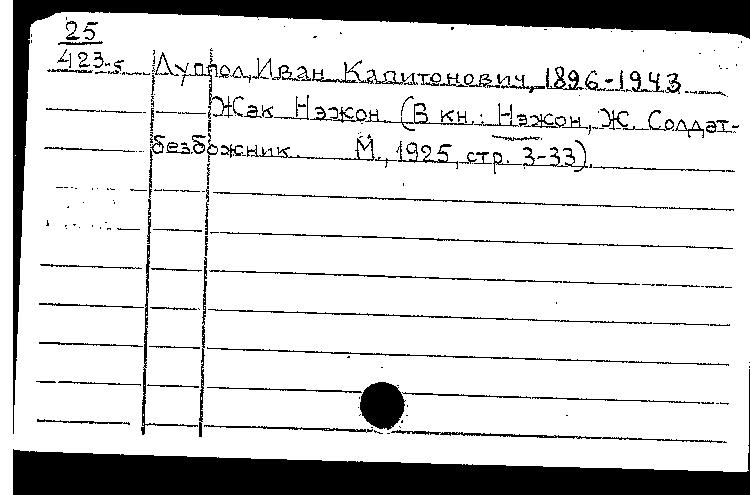 25
423-5
Луппол, Иван Капитонович, 1896-1943
Жак Нэжон. (В кн.: Нэжон, Ж. Солдат-
безбожник. М., 1925, стр. 3-33).